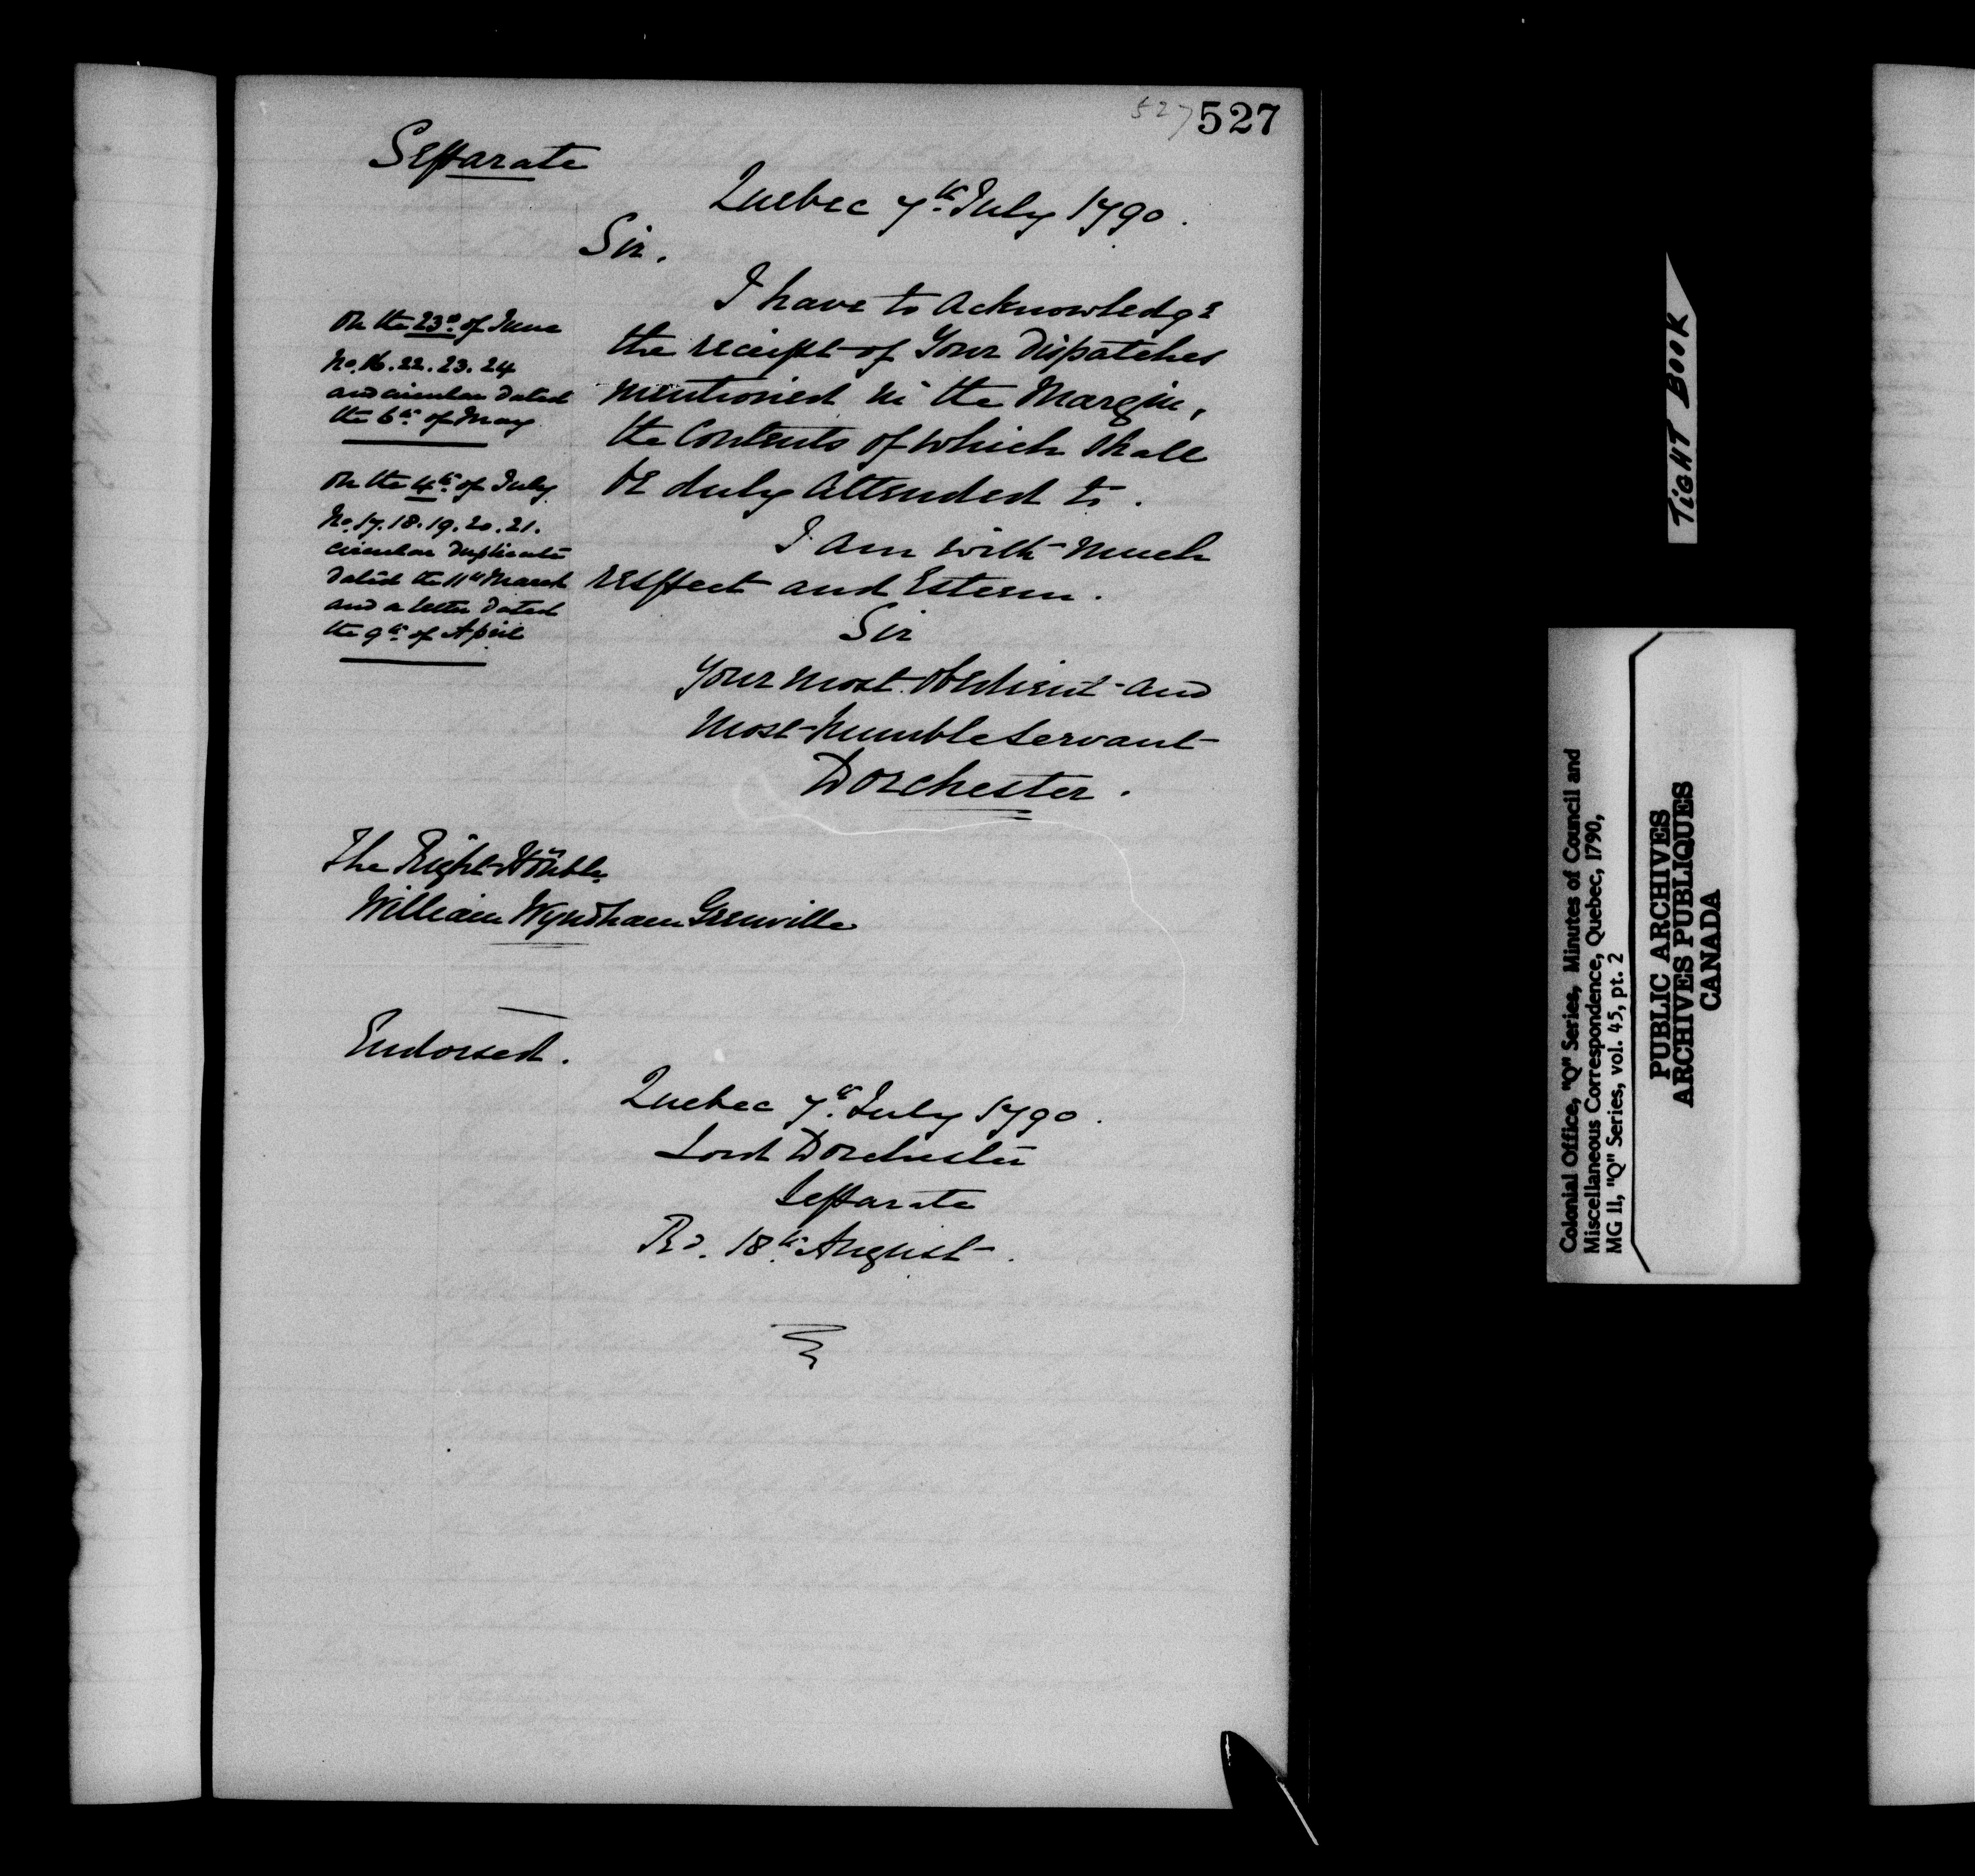 527 527
Separate
Quebec 7th July 1790.
Sir.
I have to acknowledge
the receipt of Your Dispatches
mentioned in the Margin,
the Contents of which shall
be duly attended to.
On the 23d of June
No. 16. 22. 23. 24
and circular dated
the 6th of May
On the 4th of July
No. 17. 18. 19. 20. 21.
circular Duplicate
dated the 11th March
and a letter dated
the 9th of April
I am with much
respect and Esteem.
Sir
Your most obedient and
most humble servant
Dorchester.
The Right Honble
William Wyndham Grenville
Endorsed.
Quebec 7th July 1790.
Lord Dorchester
Separate
Rd. 18th August.
TIGHT BOOK
Colonial Office, "Q" Series, Minutes of Council and
Miscellaneous Correspondence, Quebec, 1790,
MG 11, "Q" Series, vol. 45, pt. 2
PUBLIC ARCHIVES
ARCHIVES PUBLIQUES
CANADA